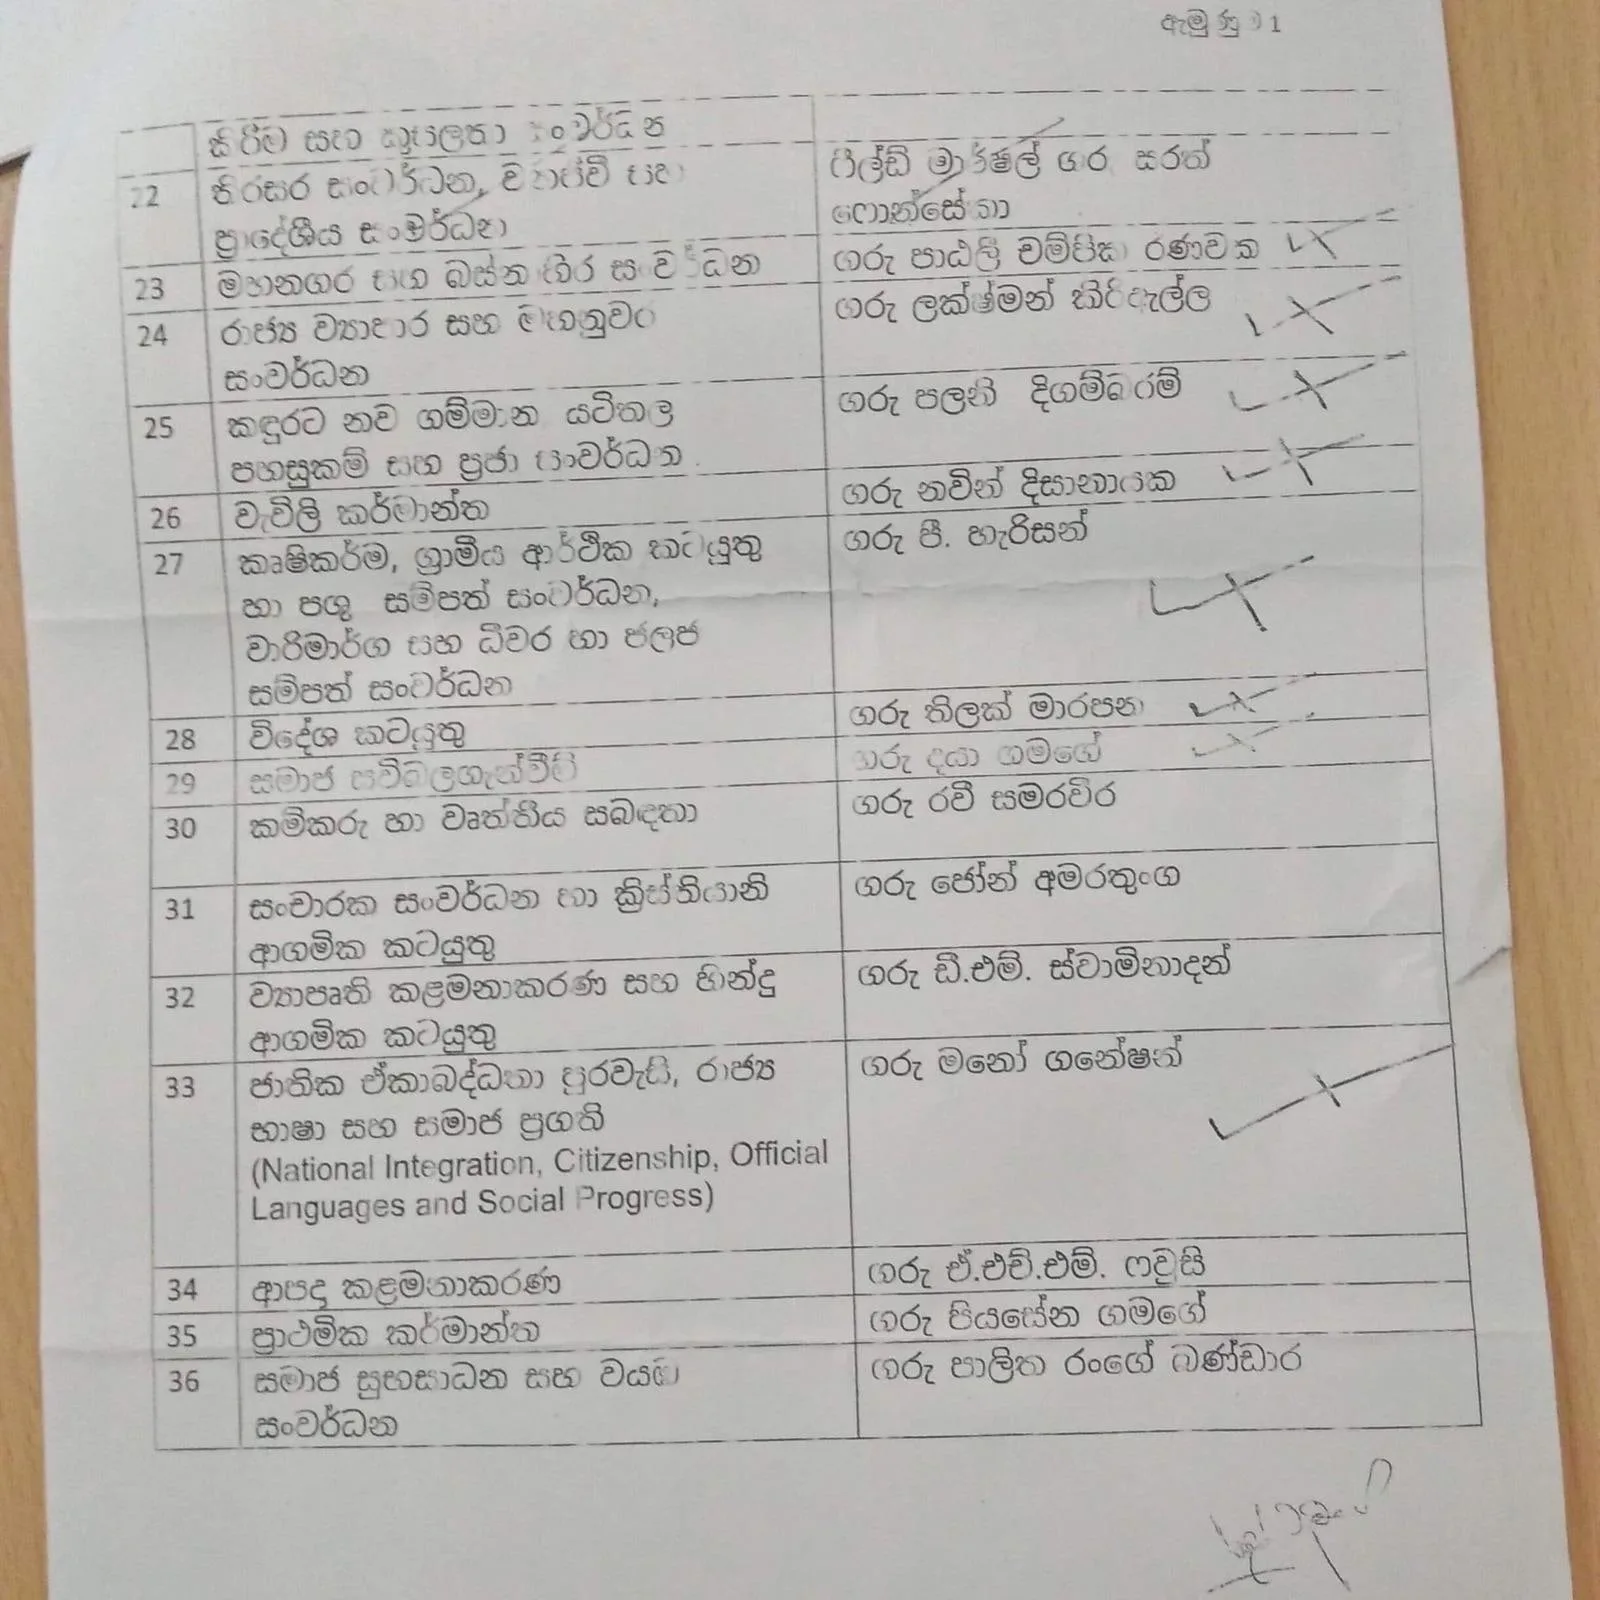 ඇමුණුම 1
කිරීම සහ කුසලතා සංවර්ධන
22 තිරසර සංවර්ධන, වනජීවී සහ ෆීල්ඩ් මාර්ෂල් ගරු සරත්
ප්‍රාදේශීය සංවර්ධන ෆොන්සේකා
23 මහනගර සහ බස්නාහිර සංවර්ධන ගරු පාඨලී චම්පික රණවක
24 රාජ්‍ය ව්‍යාපාර සහ මහනුවර ගරු ලක්ෂ්මන් කිරිඇල්ල
සංවර්ධන
25 කඳුරට නව ගම්මාන යටිතල ගරු පලනි දිගම්බරම්
පහසුකම් සහ ප්‍රජා සංවර්ධන
26 වැවිලි කර්මාන්ත ගරු නවින් දිසානායක
27 කෘෂිකර්ම, ග්‍රාමීය ආර්ථික කටයුතු ගරු පී. හැරිසන්
හා පශු සම්පත් සංවර්ධන,
වාරිමාර්ග සහ ධීවර හා ජලජ
සම්පත් සංවර්ධන
28 විදේශ කටයුතු ගරු තිලක් මාරපන
29 සමාජ සවිබලගැන්වීම් ගරු දයා ගමගේ
30 කම්කරු හා වෘත්තීය සබඳතා ගරු රවී සමරවීර
31 සංචාරක සංවර්ධන හා ක්‍රිස්තියානි ගරු ජෝන් අමරතුංග
ආගමික කටයුතු
32 ව්‍යාපෘති කළමනාකරණ සහ හින්දු ගරු ඩී.එම්. ස්වාමිනාදන්
ආගමික කටයුතු
33 ජාතික ඒකාබද්ධතා පුරවැසි, රාජ්‍ය ගරු මනෝ ගනේෂන්
භාෂා සහ සමාජ ප්‍රගති
(National Integration, Citizenship, Official
Languages and Social Progress)
34 ආපදා කළමනාකරණ ගරු ඒ.එච්.එම්. ෆවුසි
35 ප්‍රාථමික කර්මාන්ත ගරු පියසේන ගමගේ
36 සමාජ සුභසාධන සහ වයඹ ගරු පාලිත රංගේ බණ්ඩාර
සංවර්ධන